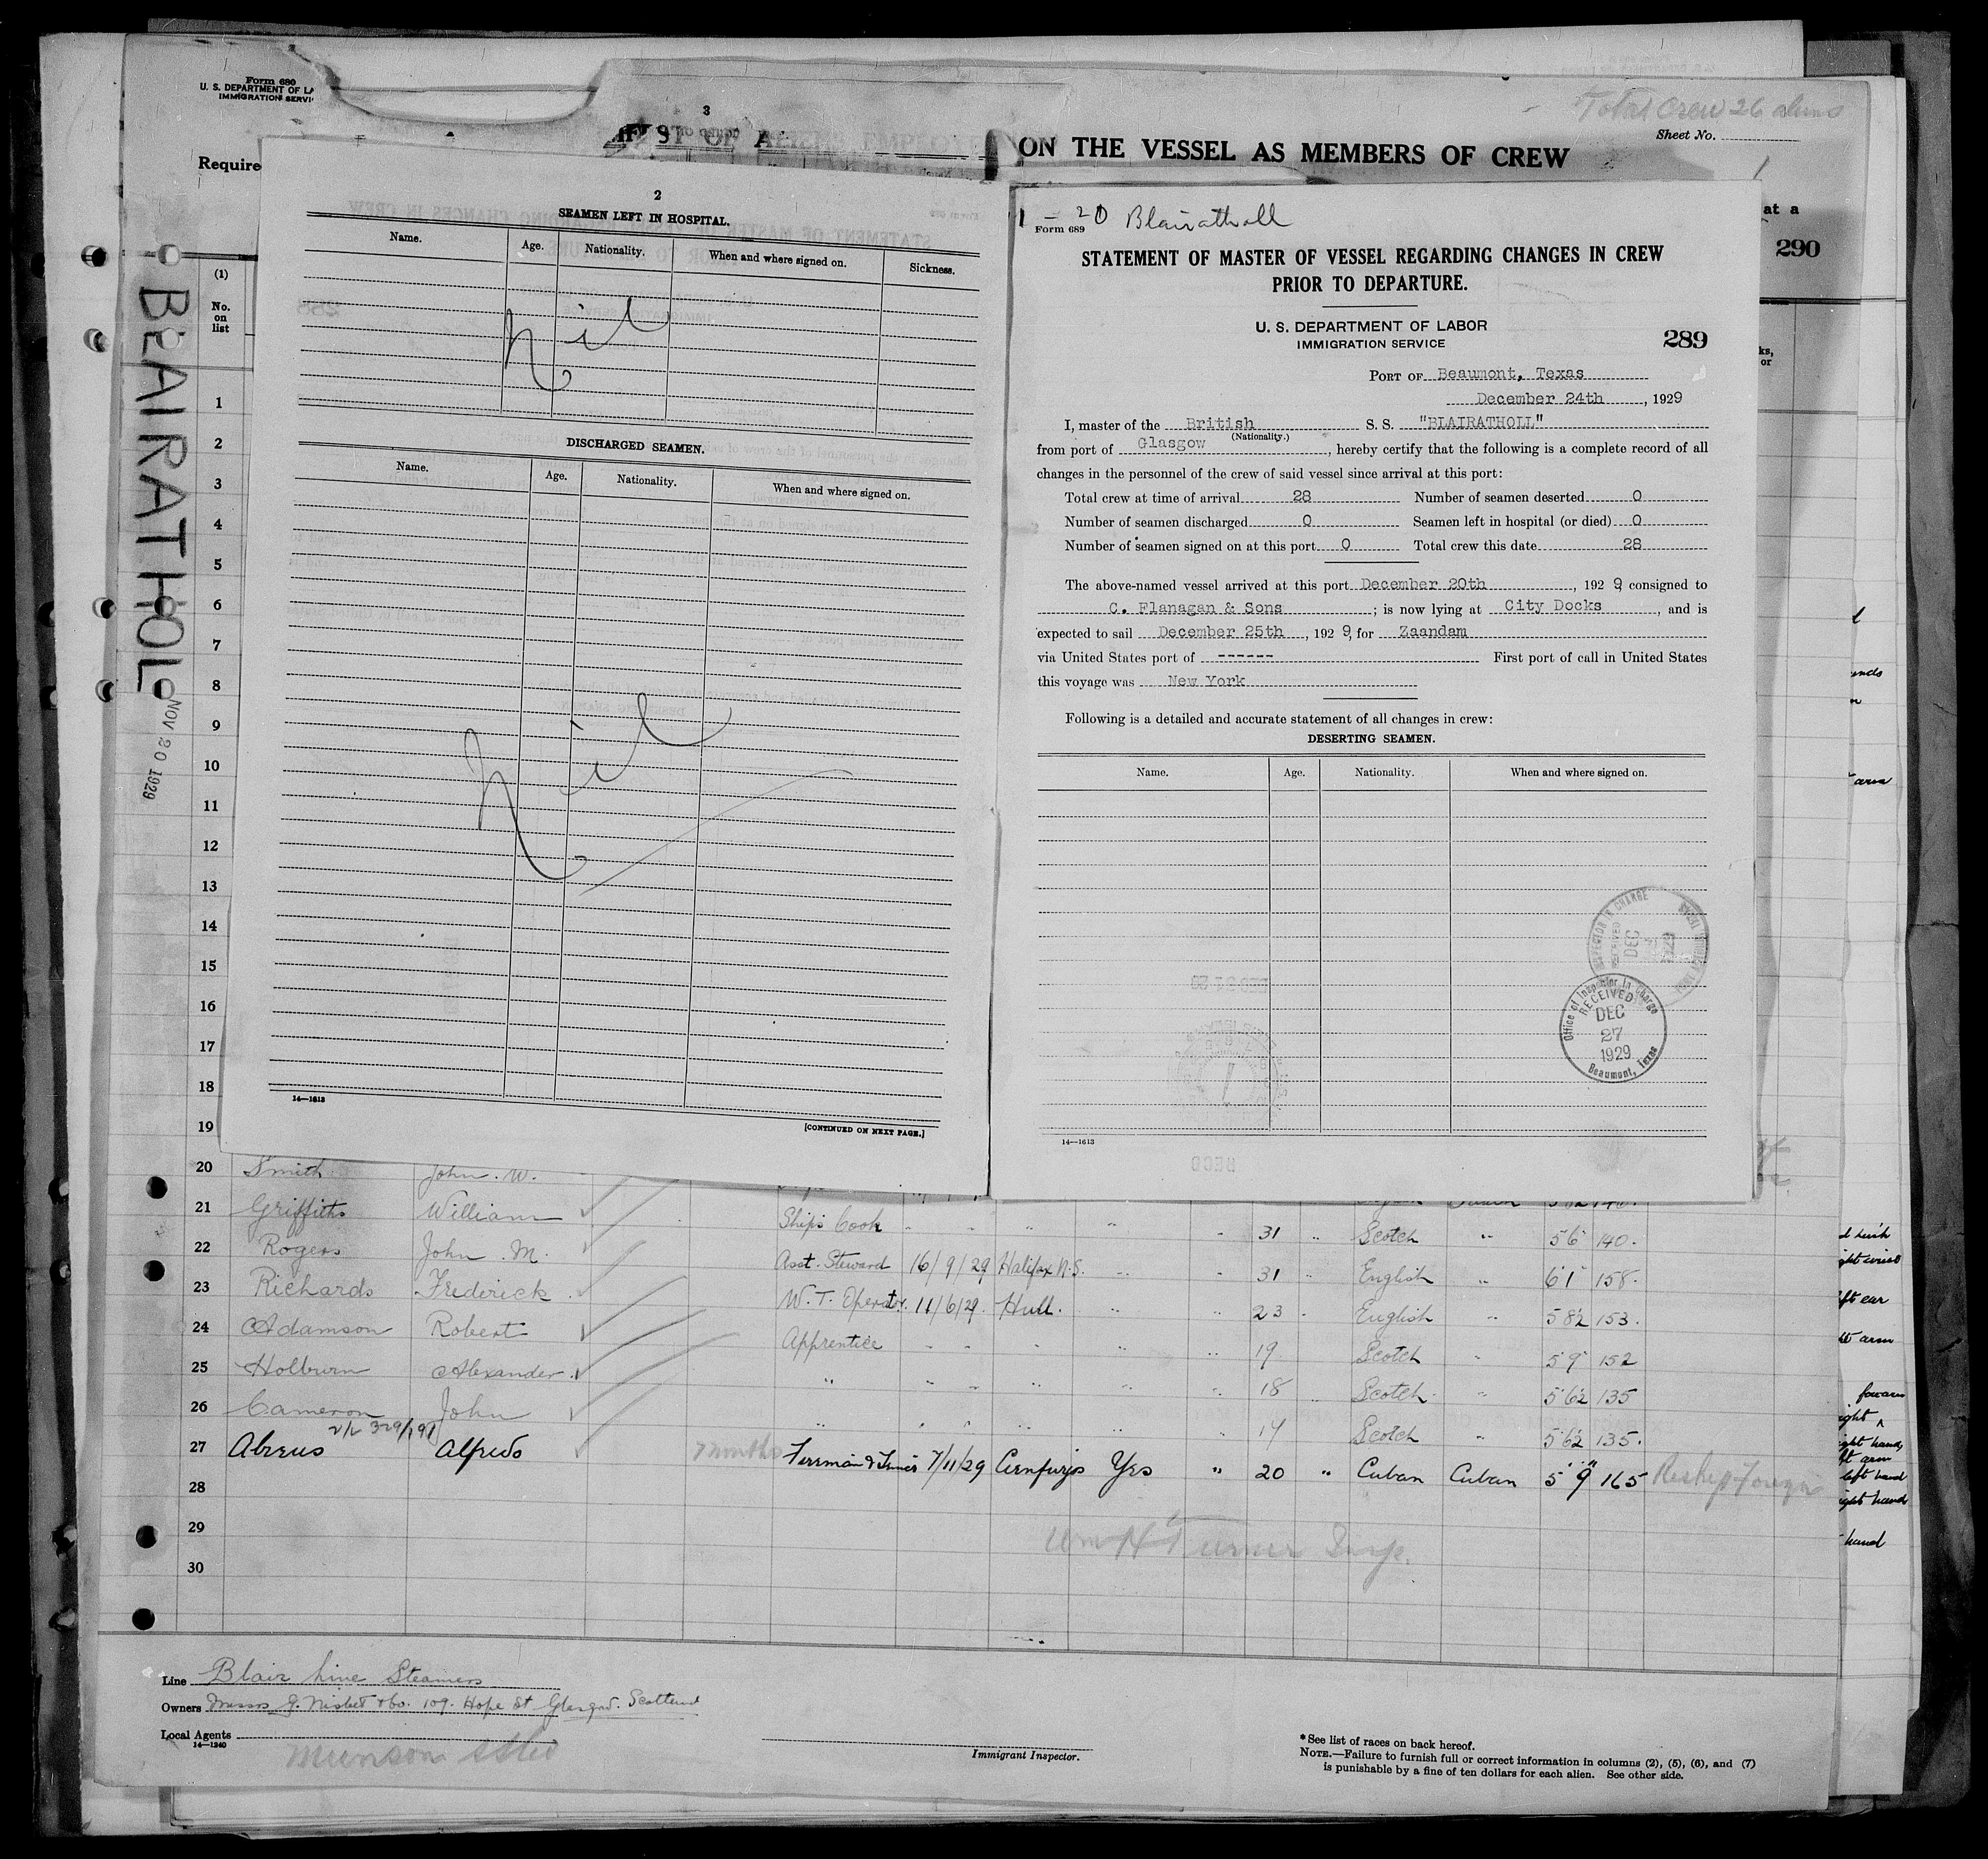 Form 680
U. S. DEPARTMENT OF LA
IMMIGRATION SERVI
3
Total Crew 26 aliens
Sheet No.
ST OF ALIENS EMPLOYE ON THE VESSEL AS MEMBERS OF CREW
Require
at a
290
(1)
No.
on
list
ks,
or
BLAIRATHOL
NOV 20 1929
2
SEAMEN LEFT IN HOSPITAL.
Name. Age. Nationality. When and where signed on. Sickness.
Nil
DISCHARGED SEAMEN.
Name. Age. Nationality. When and where signed on.
Nil
14—1613
[CONTINUED ON NEXT PAGE.]
1 - 20 Blairatholl
Form 689
STATEMENT OF MASTER OF VESSEL REGARDING CHANGES IN CREW
PRIOR TO DEPARTURE.
U. S. DEPARTMENT OF LABOR
IMMIGRATION SERVICE
289
PORT OF Beaumont, Texas
December 24th, 1929
I, master of the British S. S. "BLAIRATHOLL"
(Nationality.)
from port of Glasgow, hereby certify that the following is a complete record of all
changes in the personnel of the crew of said vessel since arrival at this port:
Total crew at time of arrival 28 Number of seamen deserted 0
Number of seamen discharged 0 Seamen left in hospital (or died) 0
Number of seamen signed on at this port 0 Total crew this date 28
The above-named vessel arrived at this port December 20th, 1929, consigned to
C. Flanagan & Sons; is now lying at City Docks, and is
expected to sail December 25th, 1929, for Zaandam
via United States port of ------ First port of call in United States
this voyage was New York
Following is a detailed and accurate statement of all changes in crew:
DESERTING SEAMEN.
Name. Age. Nationality. When and where signed on.
Office of Inspector in Charge
RECEIVED
DEC
27
1929
Beaumont, Texas
14—1613
1
2
3
4
5
6
7
8
9
10
11
12
13
14
15
16
17
18
19
20 Smith John. W.
21 Griffiths William Ships Cook 31 Scotch 5 6 140.
22 Rogers John. M. Asst. Steward 16/9/29 Halifax N.S. 31 English 6 1 158.
23 Richards Frederick W. T. Operator. 11/6/29. Hull. 23 English 5 8½ 153.
24 Adamson Robert Apprentice 19 Scotch 5 9 152
25 Holburn Alexander " 18 Scotch 5 6½ 135
26 Cameron John " 17 Scotch 5 6½ 135.
27 Abreus Alfredo 7 months 7/11/29 Yes " 20 " Cuban Cuban 5 9 165 Reship Foreign
28
29
30
Wm H Turner Insp.
arm
ft ear
arm
hand
left hand
hand
Line Blair Line Steamers
Owners Messrs G. Nisbet & Co. 109. Hope St Glasgow. Scotland
Local Agents
14—1240
Munson
Immigrant Inspector.
* See list of races on back hereof.
NOTE.—Failure to furnish full or correct information in columns (2), (5), (6), and (7)
is punishable by a fine of ten dollars for each alien. See other side.